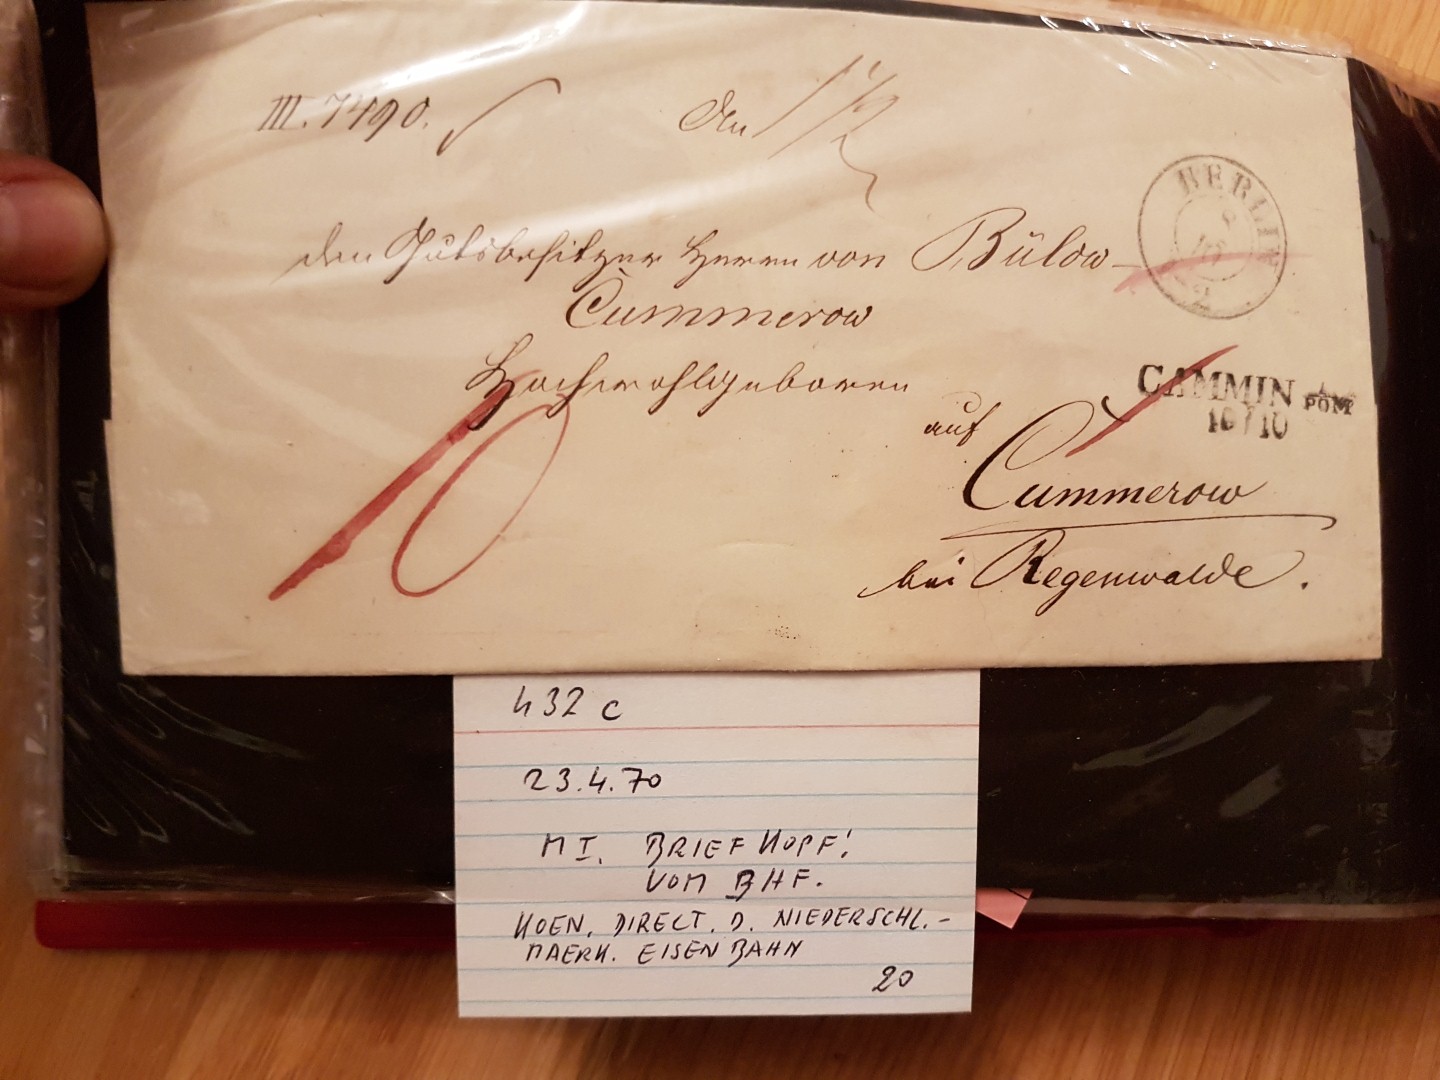 III. 7490.
den
BERLIN
den Gutsbesitzer Herrn von Bülow
Cummerow
Hochwohlgeboren
CAMMIN POM
10/10
auf
Cummerow
bei Regenwalde.
10
432 c
23.4.70
M I. BRIEFKOPF!
VOM BHF.
KOEN. DIRECT. D. NIEDERSCHL.-
MAERK. EISENBAHN
20